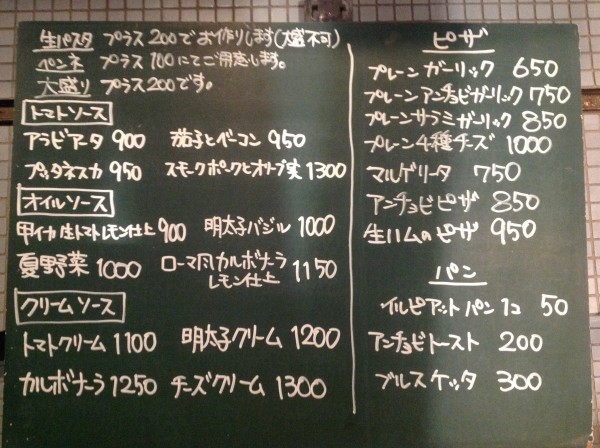 生パスタ プラス200でお作りします(大盛不可)
ペンネ プラス100にてご用意します。
大盛り プラス200です。
トマトソース
アラビアータ 900 茄子とベーコン 950
プッタネスカ 950 スモークポークとオリーブ実 1300
オイルソース
甲イカ生トマトレモン仕上 900 明太子バジル 1000
夏野菜 1000 ローマ風カルボナーラ
レモン仕上 1150
クリームソース
トマトクリーム 1100 明太子クリーム 1200
カルボナーラ 1250 チーズクリーム 1300
ピザ
プレーンガーリック 650
プレーンアンチョビガーリック 750
プレーンサラミガーリック 850
プレーン4種チーズ 1000
マルゲリータ 750
アンチョビピザ 850
生ハムのピザ 950
パン
イルピアットパン1コ 50
アンチョビトースト 200
ブルスケッタ 300